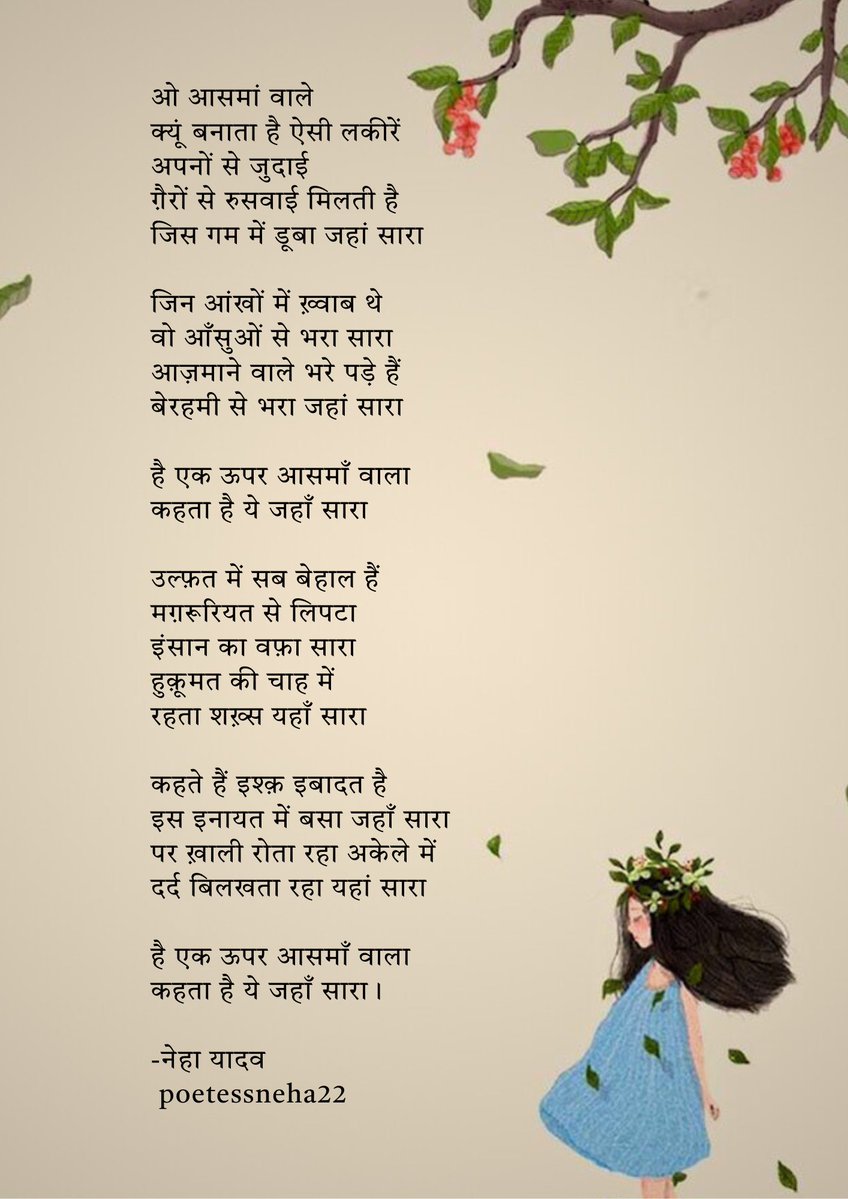 ओ आसमां वाले
क्यूं बनाता है ऐसी लकीरें
अपनों से जुदाई
ग़ैरों से रुसवाई मिलती है
जिस गम में डूबा जहां सारा
जिन आंखों में ख़्वाब थे
वो आँसुओं से भरा सारा
आज़माने वाले भरे पड़े हैं
बेरहमी से भरा जहां सारा
है एक ऊपर आसमाँ वाला
कहता है ये जहाँ सारा
उल्फ़त में सब बेहाल हैं
मग़रूरियत से लिपटा
इंसान का वफ़ा सारा
हुक़ूमत की चाह में
रहता शख़्स यहाँ सारा
कहते हैं इश्क़ इबादत है
इस इनायत में बसा जहाँ सारा
पर ख़ाली रोता रहा अकेले में
दर्द बिलखता रहा यहां सारा
है एक ऊपर आसमाँ वाला
कहता है ये जहाँ सारा।
-नेहा यादव
poetessneha22